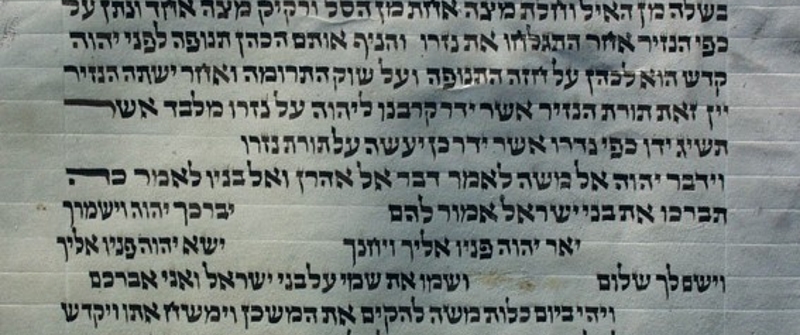 בשלה מן האיל וחלת מצה אחת מן הסל ורקיק מצה אחד ונתן על
כפי הנזיר אחר התגלחו את נזרו והניף אותם הכהן תנופה לפני יהוה
קדש הוא לכהן על חזה התנופה ועל שוק התרומה ואחר ישתה הנזיר
יין זאת תורת הנזיר אשר ידר קרבנו ליהוה על נזרו מלבד אשר
תשיג ידו כפי נדרו אשר ידר כן יעשה על תורת נזרו
וידבר יהוה אל משה לאמר דבר אל אהרן ואל בניו לאמר כה
תברכו את בני ישראל אמור להם יברכך יהוה וישמרך
יאר יהוה פניו אליך ויחנך ישא יהוה פניו אליך
וישם לך שלום ושמו את שמי על בני ישראל ואני אברכם
ויהי ביום כלות משה להקים את המשכן וימשח אתו ויקדש